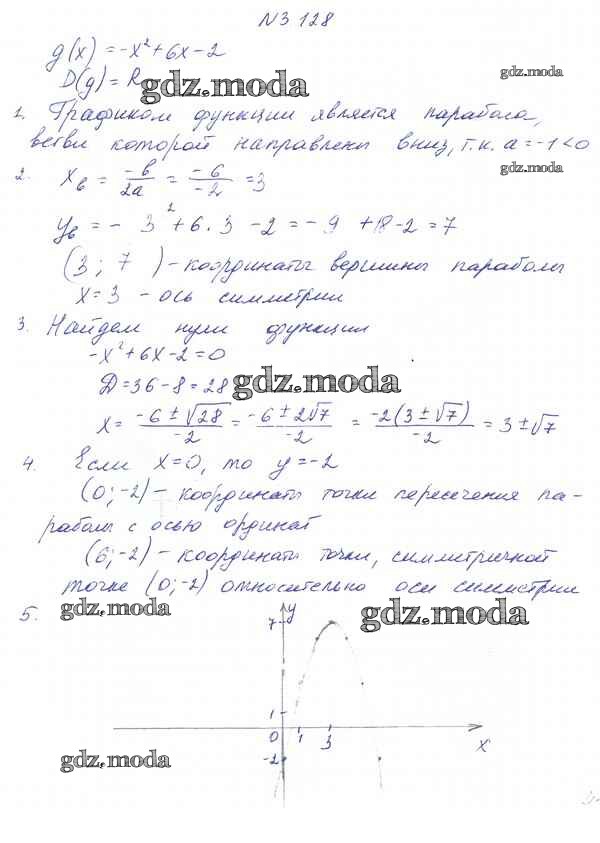 N3 128
g(x) = -x² + 6x - 2
D(g) = R
gdz.moda
gdz.moda
1. Графиком функции является парабола,
ветви которой направлены вниз, т.к. a = -1 < 0
gdz.moda
2. xв = -в/2a = -6/-2 = 3
yв = - 3² + 6 · 3 - 2 = - 9 + 18 - 2 = 7
(3 ; 7 ) - координаты вершины параболы
x = 3 - ось симметрии
3. Найдем нули функции
-x² + 6x - 2 = 0
D = 36 - 8 = 28
gdz.moda
x = -6 ± √28/-2 = -6 ± 2√7/-2 = -2(3 ± √7)/-2 = 3 ± √7
4. Если x = 0, то y = -2
(0; -2) - координаты точки пересечения па-
раболы с осью ординат
(6; -2) - координаты точки, симметричной
точке (0; -2) относительно оси симметрии
5.
gdz.moda
gdz.moda
y
7
1
0 1 3 x
-2
gdz.moda